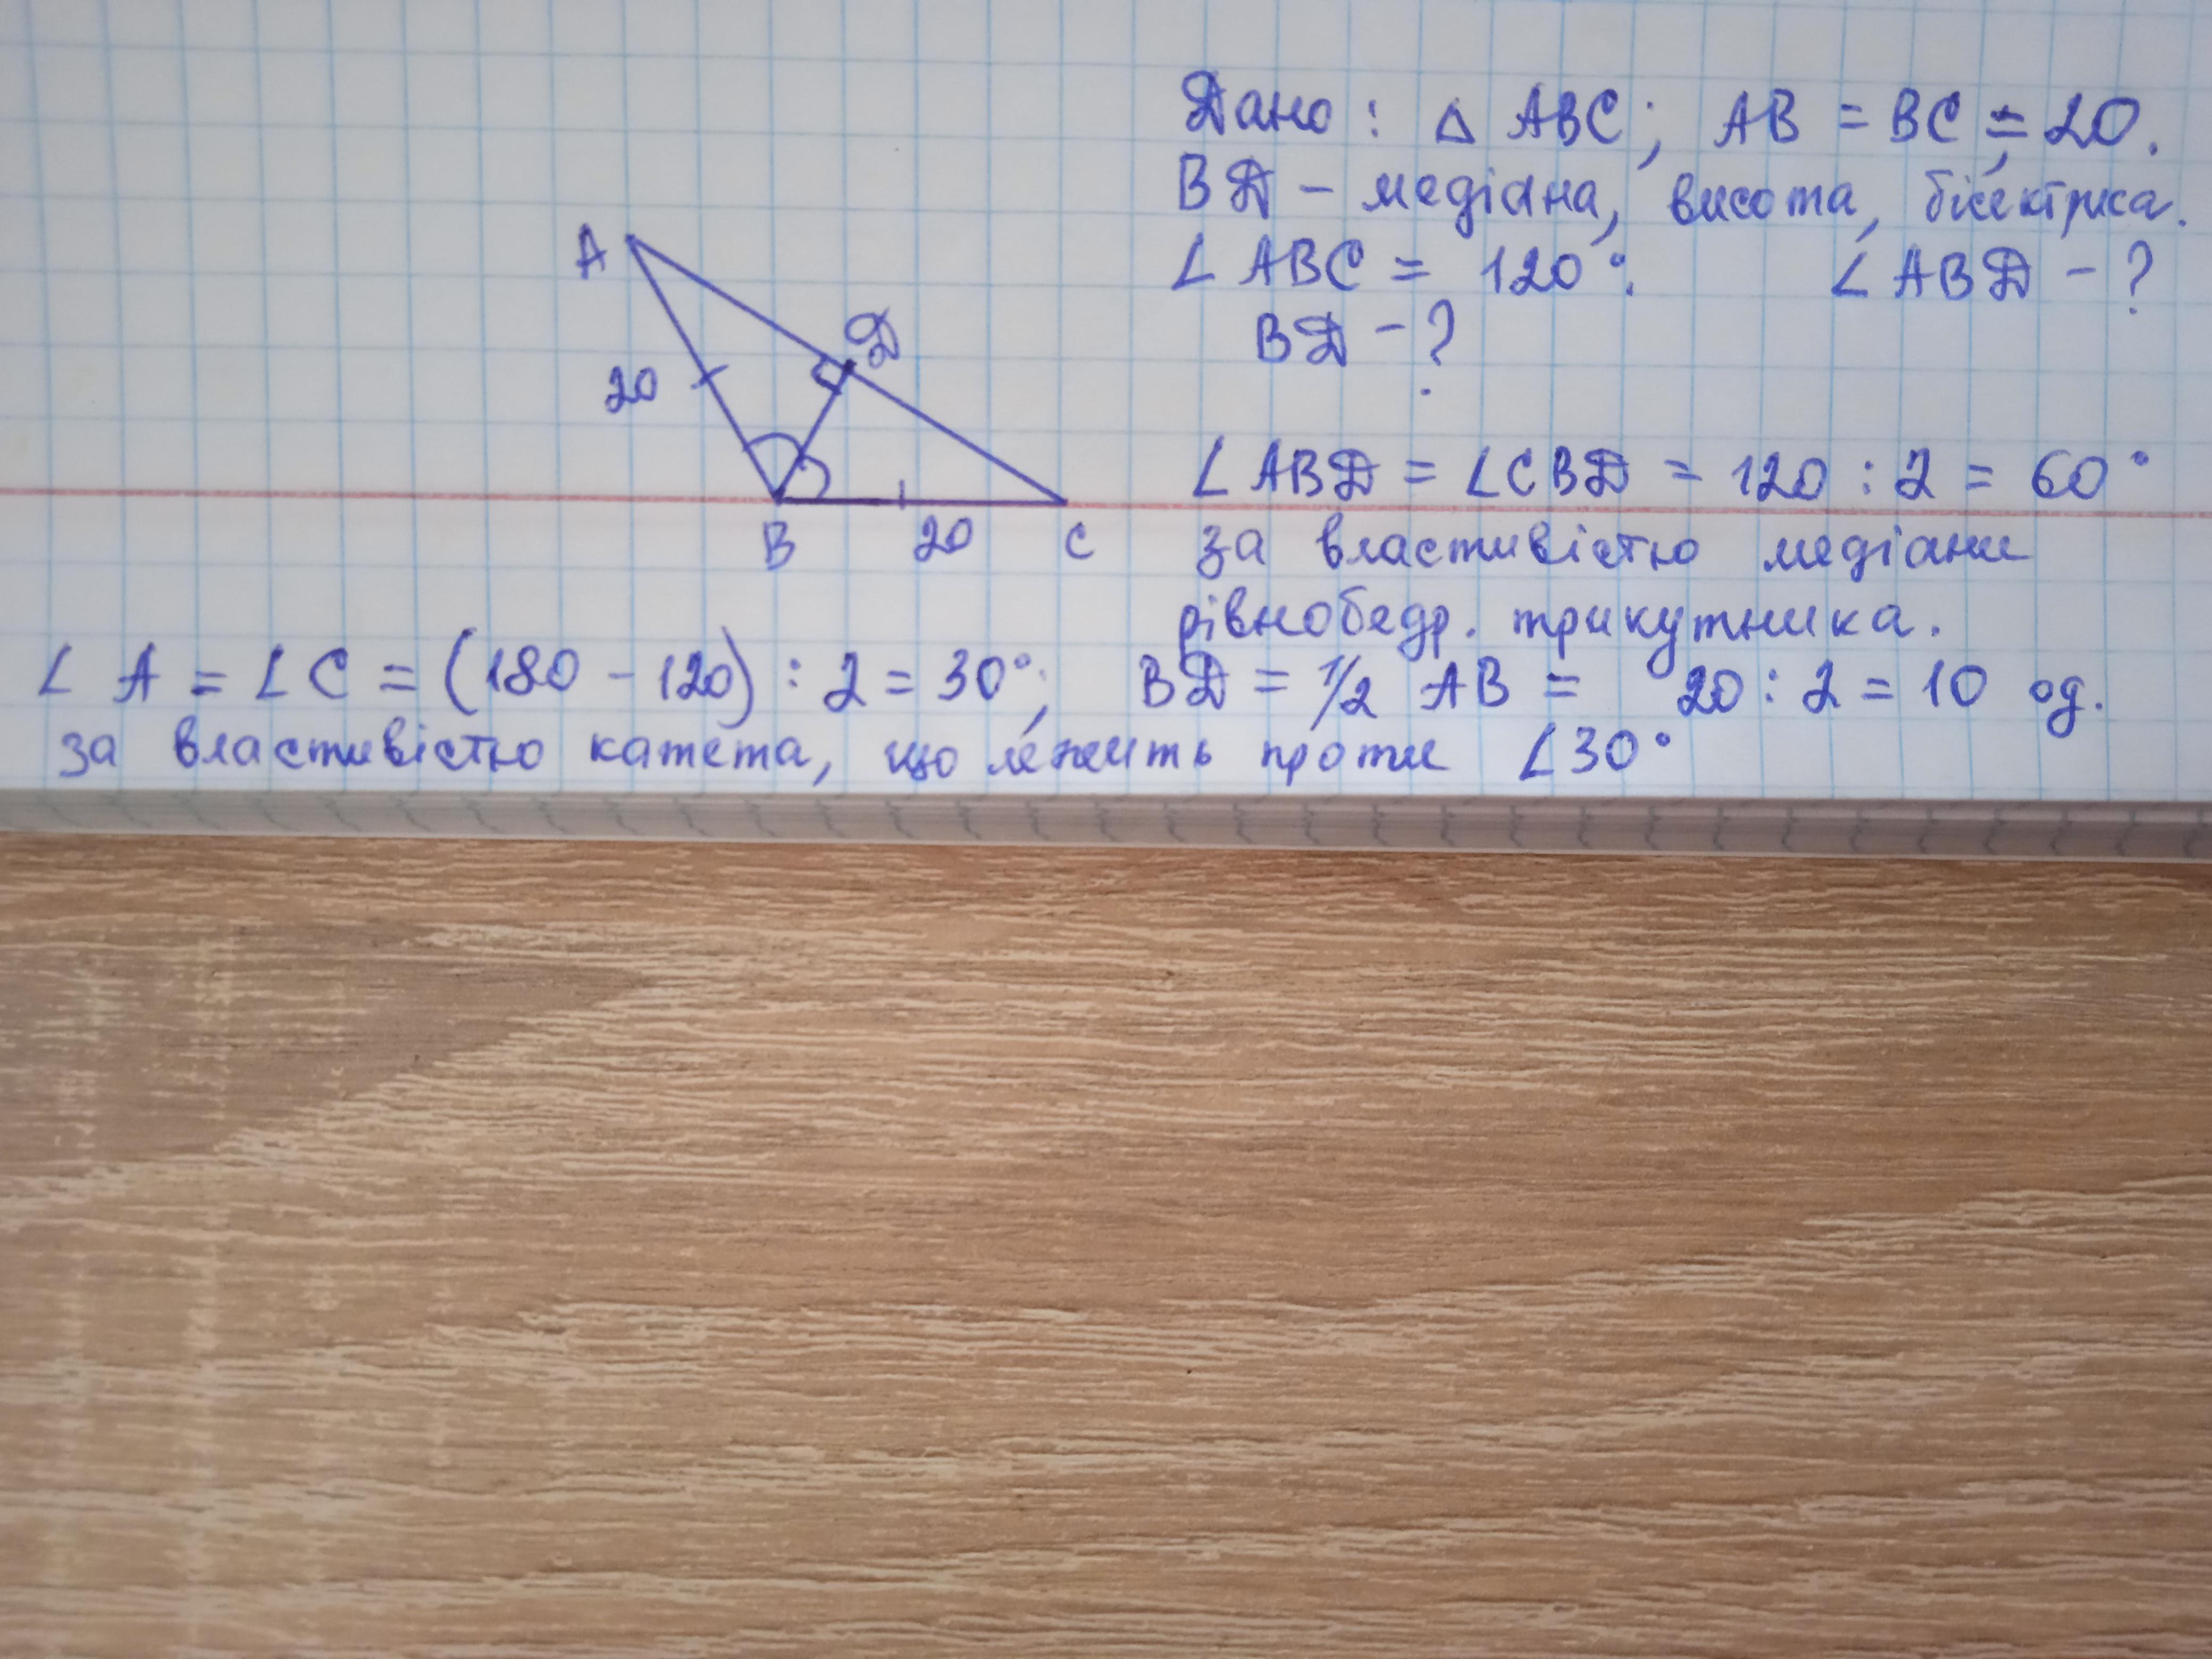 Дано: △ ABC; AB = BC = 20.
BD – медіана, висота, бісектриса.
∠ ABC = 120°. ∠ ABD – ?
BD – ?
A
D
20
B 20 C
∠ ABD = ∠CBD = 120 : 2 = 60°
за властивістю медіани
рівнобедр. трикутника.
∠ A = ∠ C = (180 – 120) : 2 = 30°; BD = 1/2 AB = 20 : 2 = 10 од.
за властивістю катета, що лежить проти ∠30°